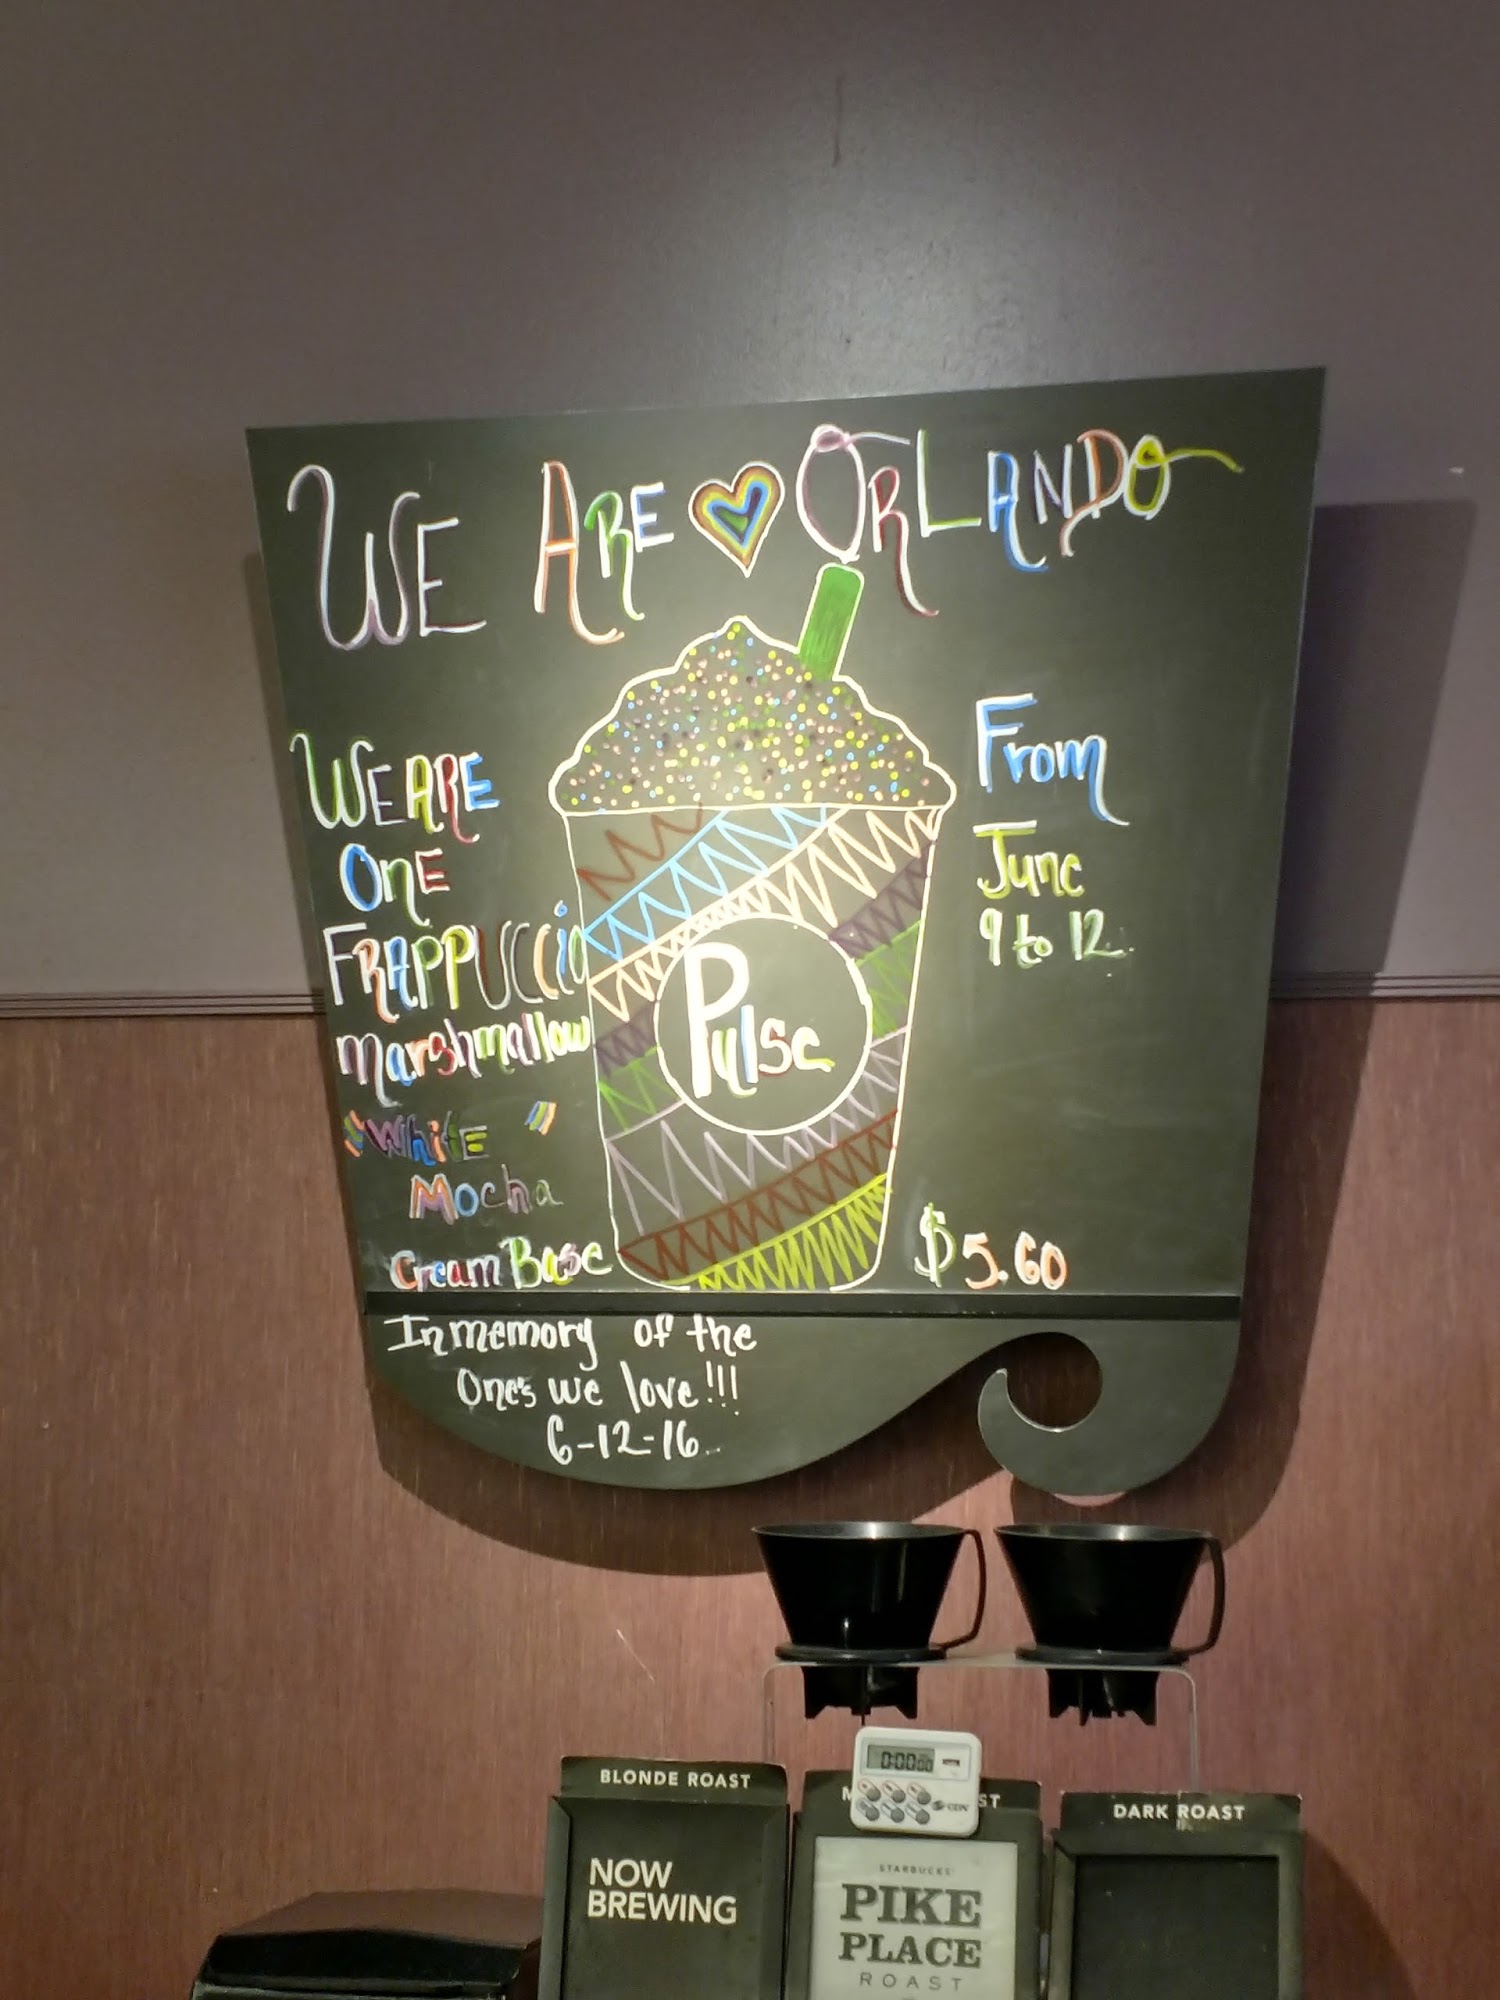 WE ARE ORLANDO
WE ARE
ONE
FRAPPUCCIO
Marshmallow
"WhitE "
Mocha
Cream Base
Pulse
From
June
9 to 12
$5.60
In memory of the
One's we love!!!
6-12-16
BLONDE ROAST
NOW
BREWING
ST
STARBUCKS
PIKE
PLACE
ROAST
DARK ROAST
0:0000
CDN